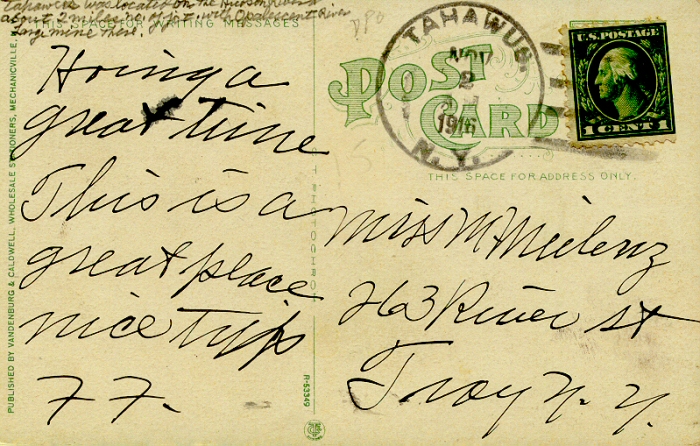 Tahawus was located on the Hudson River
about 2 miles no. of jct. with Opalescent River
Large mine there.
DPO
THIS SPACE FOR WRITING MESSAGES
Having a
great time
This is a
great place
nice trip
F F.
PUBLISHED BY VANDENBURG & CALDWELL, WHOLESALE STATIONERS, MECHANICVILLE, N.
A-53349
POST CARD
TAHAWUS
NOV
2
1916
N.Y.
U.S. POSTAGE
1 CENT 1
THIS SPACE FOR ADDRESS ONLY.
Miss M Meilenz
263 River st
Troy N. Y.